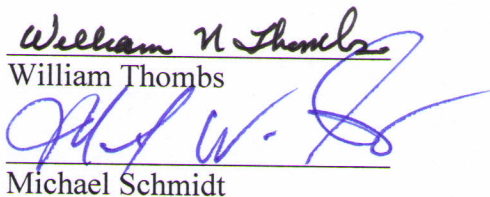 William N Thombs
William Thombs
Michael Schmidt